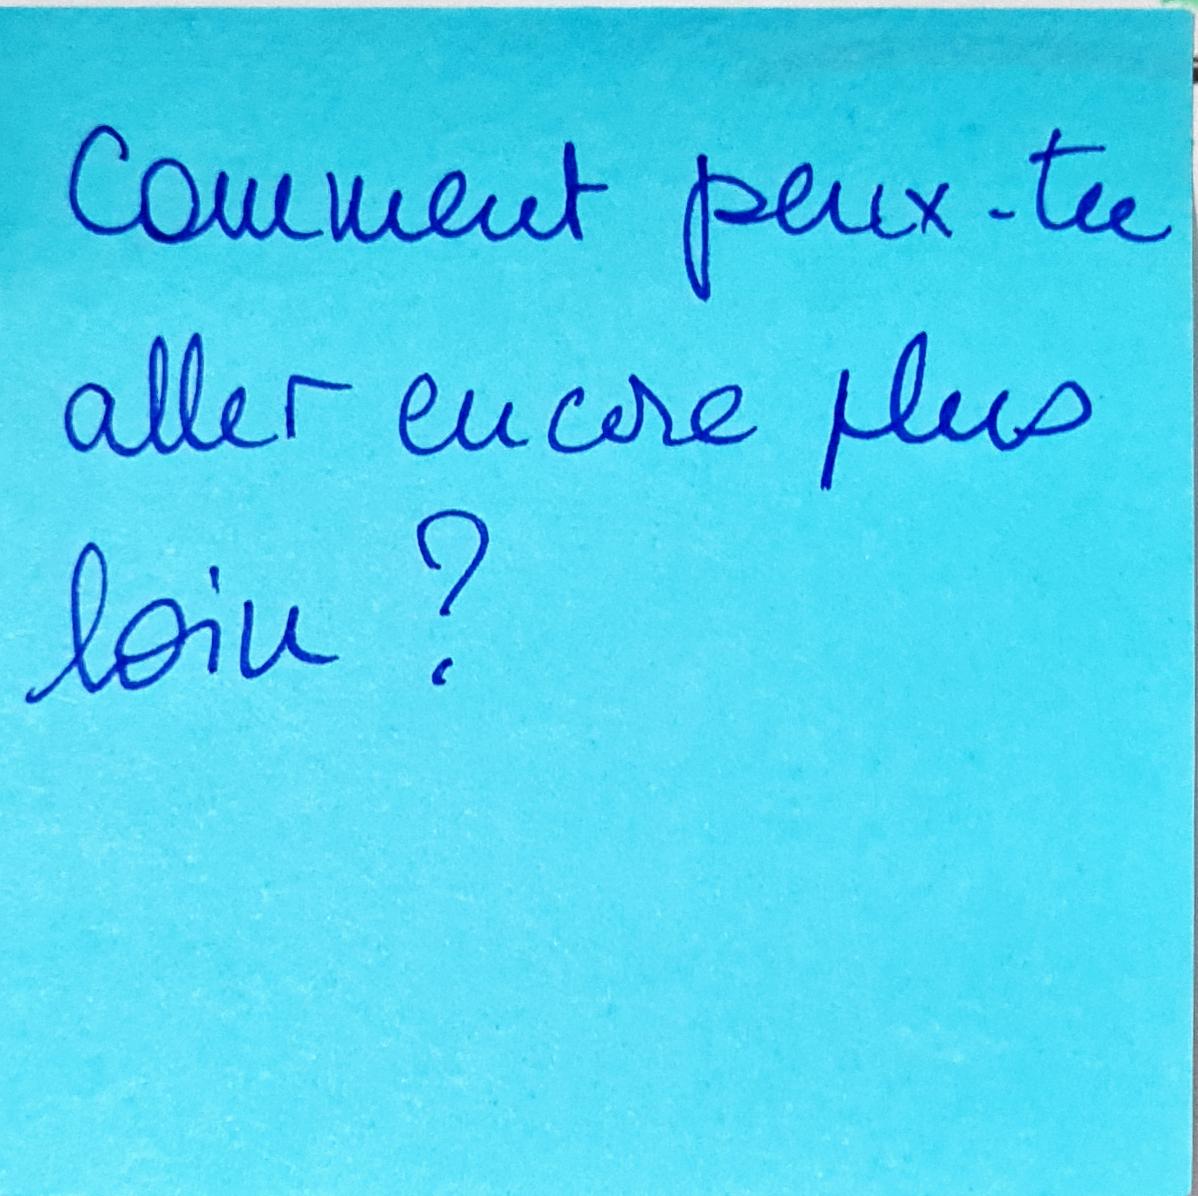 Comment peux-tu
aller encore plus
loin ?